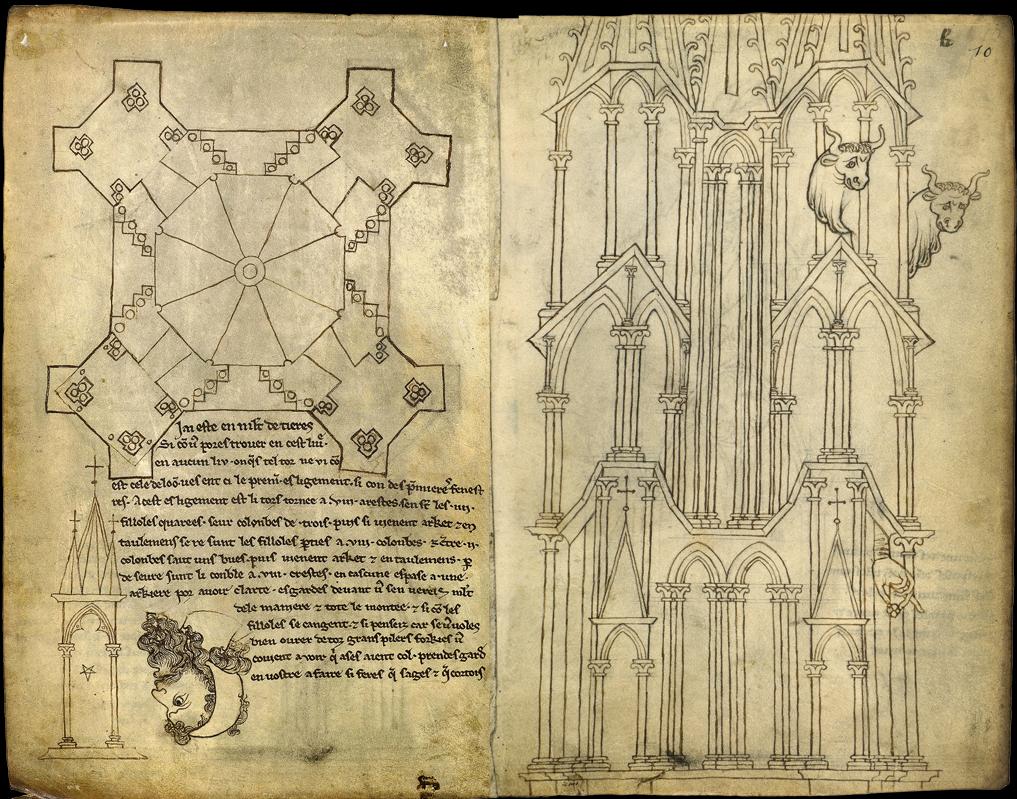 Jai este en mlt de tieres
Si cō u̾ pores trouer en cest liu̾.
en aucun liv · onq̃s tel tor ne vi cō
est cele de loō · ves ent ci le premi̾ · esligement · si con des p̾mieres fenest
res · A cest esligement est li tors tornee a · viii · arestes · sen st̄ les · iiii ·
filloles quarees · seur colonbes de · trois · puis si uienent arket ⁊ en
taulemens se re sunt les filloles p̾ties a · viii · colonbes · ⁊ ētre · ii ·
colonbes saut uns bues · puis uienent arket ⁊ en taulemens · ꝑ
de seure sunt li conble a · viii · crestes · en cascune espase a · une ·
arkiere por auoir clarte · esgardes deuant u̾ sen uereis mlt
dele maniere ⁊ tote le montee · ⁊ si cō les
filloles se cangent · ⁊ si penseiz car se u̾ uoles
bien ourer de toz grans pilers forkies u̾
couient auoir q̃ ases aient col · prendes gard
en uostre afaire si feres q̃ sages ⁊ q̃ cortois
10